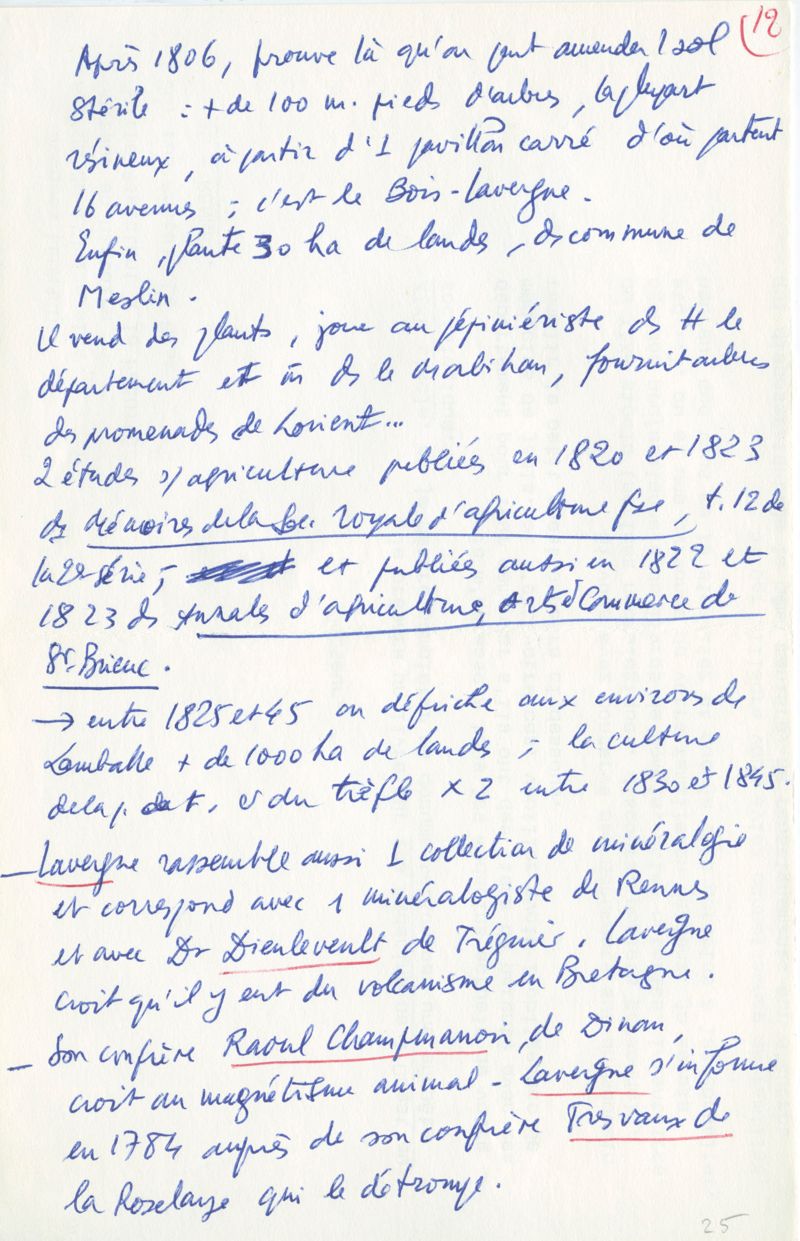 12
Après 1806, prouve là qu'on peut amender 1 sol
stérile : + de 100 m. pieds d'arbres, la plupart
résineux, à partir d'1 pavillon carré d'où partent
16 avenues ; c'est le Bois-Lavergne.
Enfin, plante 30 ha de landes, ds commune de
Meslin.
Il vend des plants, joue au pépiniériste ds tt le
département et m̂ ds le Morbihan, fournit arbres
des promenades de Lorient...
2 études s/ agriculture publiées en 1820 et 1823
ds Mémoires de la Soc. royale d'agriculture fse, t. 12 de
la 2e série, et publiées aussi en 1822 et
1823 ds Annales d'agriculture, Arts & Commerce de
St-Brieuc.
→ entre 1825 et 45 on défriche aux environs de
Lamballe + de 1000 ha de landes ; la culture
de la p. de t. et du trèfle x 2 entre 1830 et 1845.
— Lavergne rassemble aussi 1 collection de minéralogie
et correspond avec 1 minéralogiste de Rennes
et avec Dr Dieuleveult de Tréguier. Lavergne
croit qu'il y eut du volcanisme en Bretagne.
— Son confrère Raoul Champmanoir, de Dinan,
croit au magnétisme animal - Lavergne s'informe
en 1784 auprès de son confrère Tresvaux de
la Roselaye qui le détrompe.
25